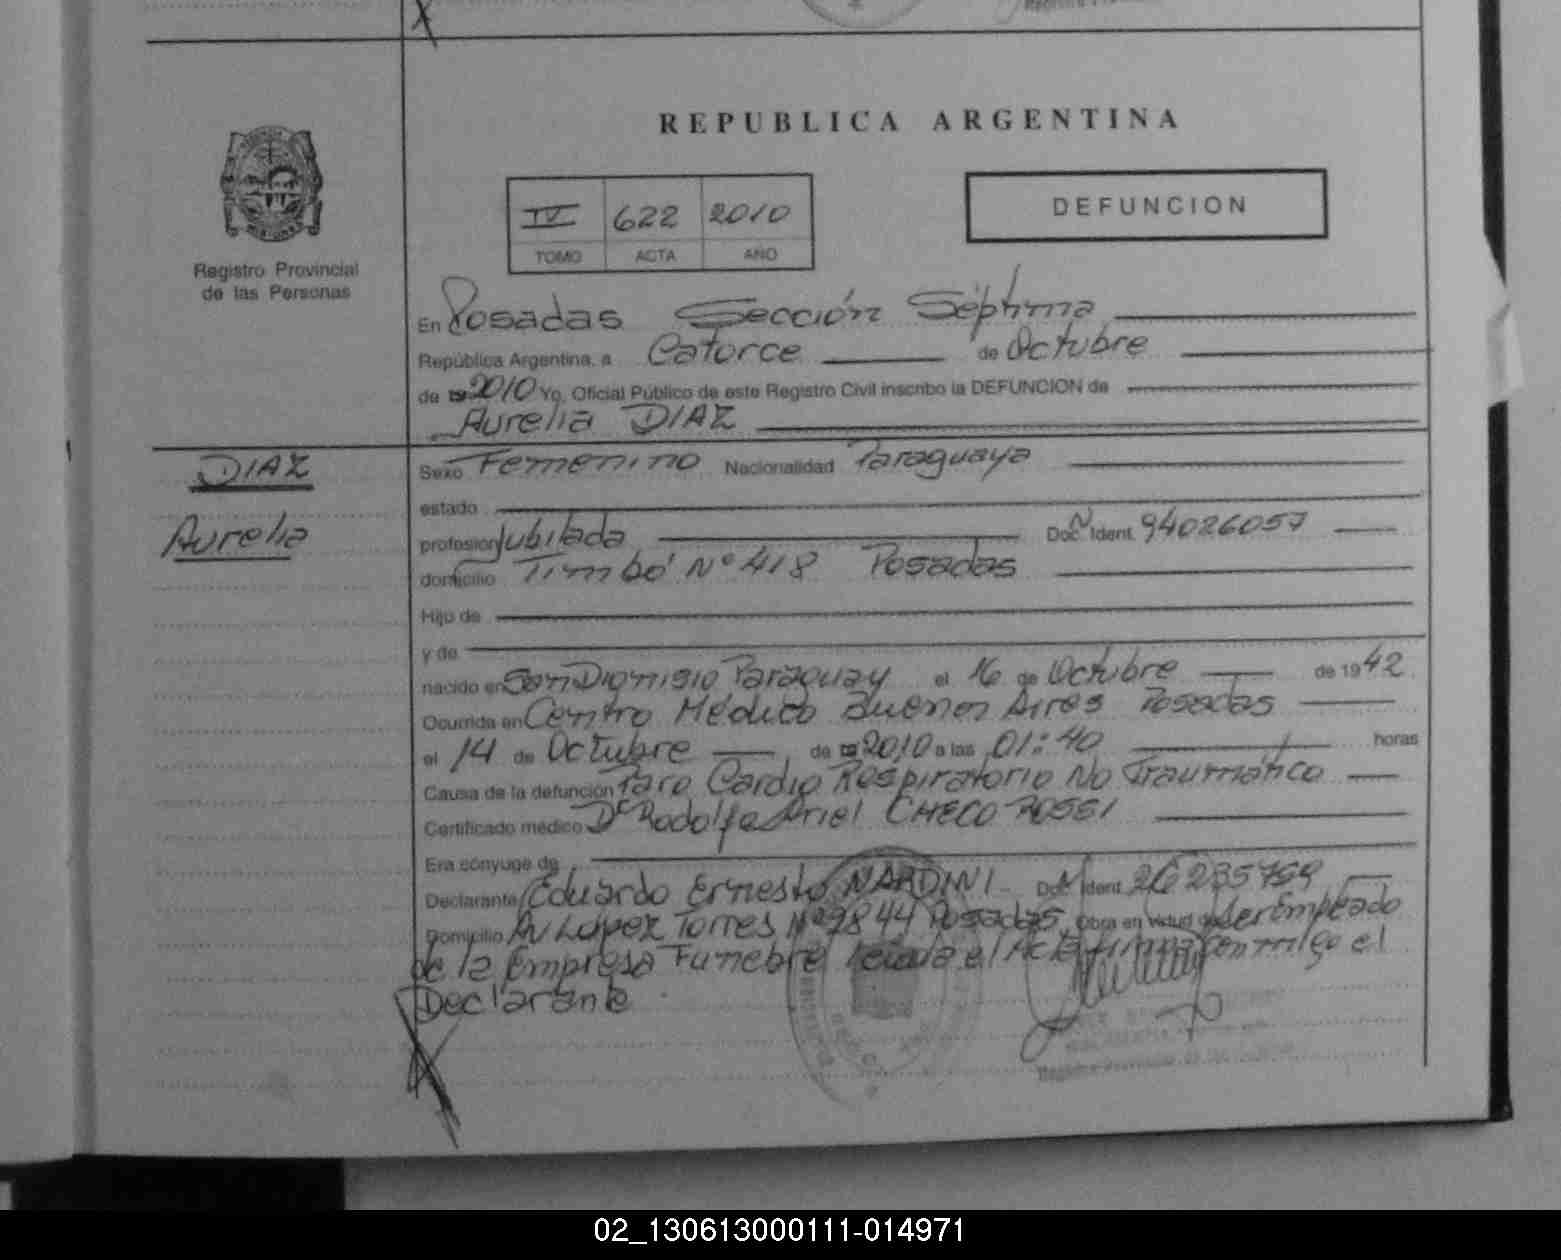 REPUBLICA ARGENTINA
IV 622 2010
TOMO ACTA AÑO
DEFUNCION
Registro Provincial
de las Personas
En Posadas Sección Séptima
República Argentina, a Catorce de Octubre
de 2010 Yo, Oficial Público de este Registro Civil inscribo la DEFUNCION de
Aurelia DIAZ
DIAZ
Aurelia
Sexo Femenino Nacionalidad Paraguaya
estado
profesion Jubilada Doc. Ident. 94026057
domicilio Timbó Nº 418 Posadas
Hijo de
y de
nacido en San Dionisio Paraguay el 16 de Octubre de 1942
Ocurrida en Centro Médico Buenos Aires Posadas
el 14 de Octubre de 2010 a las 01:40 horas
Causa de la defunción Paro Cardio Respiratorio No Traumático
Certificado médico Dr Rodolfo Ariel CHECO ROSSI
Era cónyuge de
Declarante Eduardo Ernesto NARDINI Doc. Ident. 26235759
Domicilio Av López Torres Nº 2844 Posadas Obra en virtud de Ser Empleado
de la Empresa Funebre el Acta firma conmigo el
Declarante
02_130613000111-014971